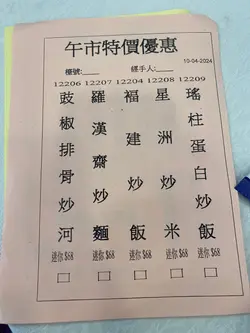 午市特價優惠
10-04-2024
檯號: 經手人:____
12206 12207 12204 12208 12209
豉椒排骨炒河
羅漢齋炒麵
福建炒飯
星洲炒米
瑤柱蛋白炒飯
迷你 $68 迷你 $68 迷你 $68 迷你 $68 迷你 $68